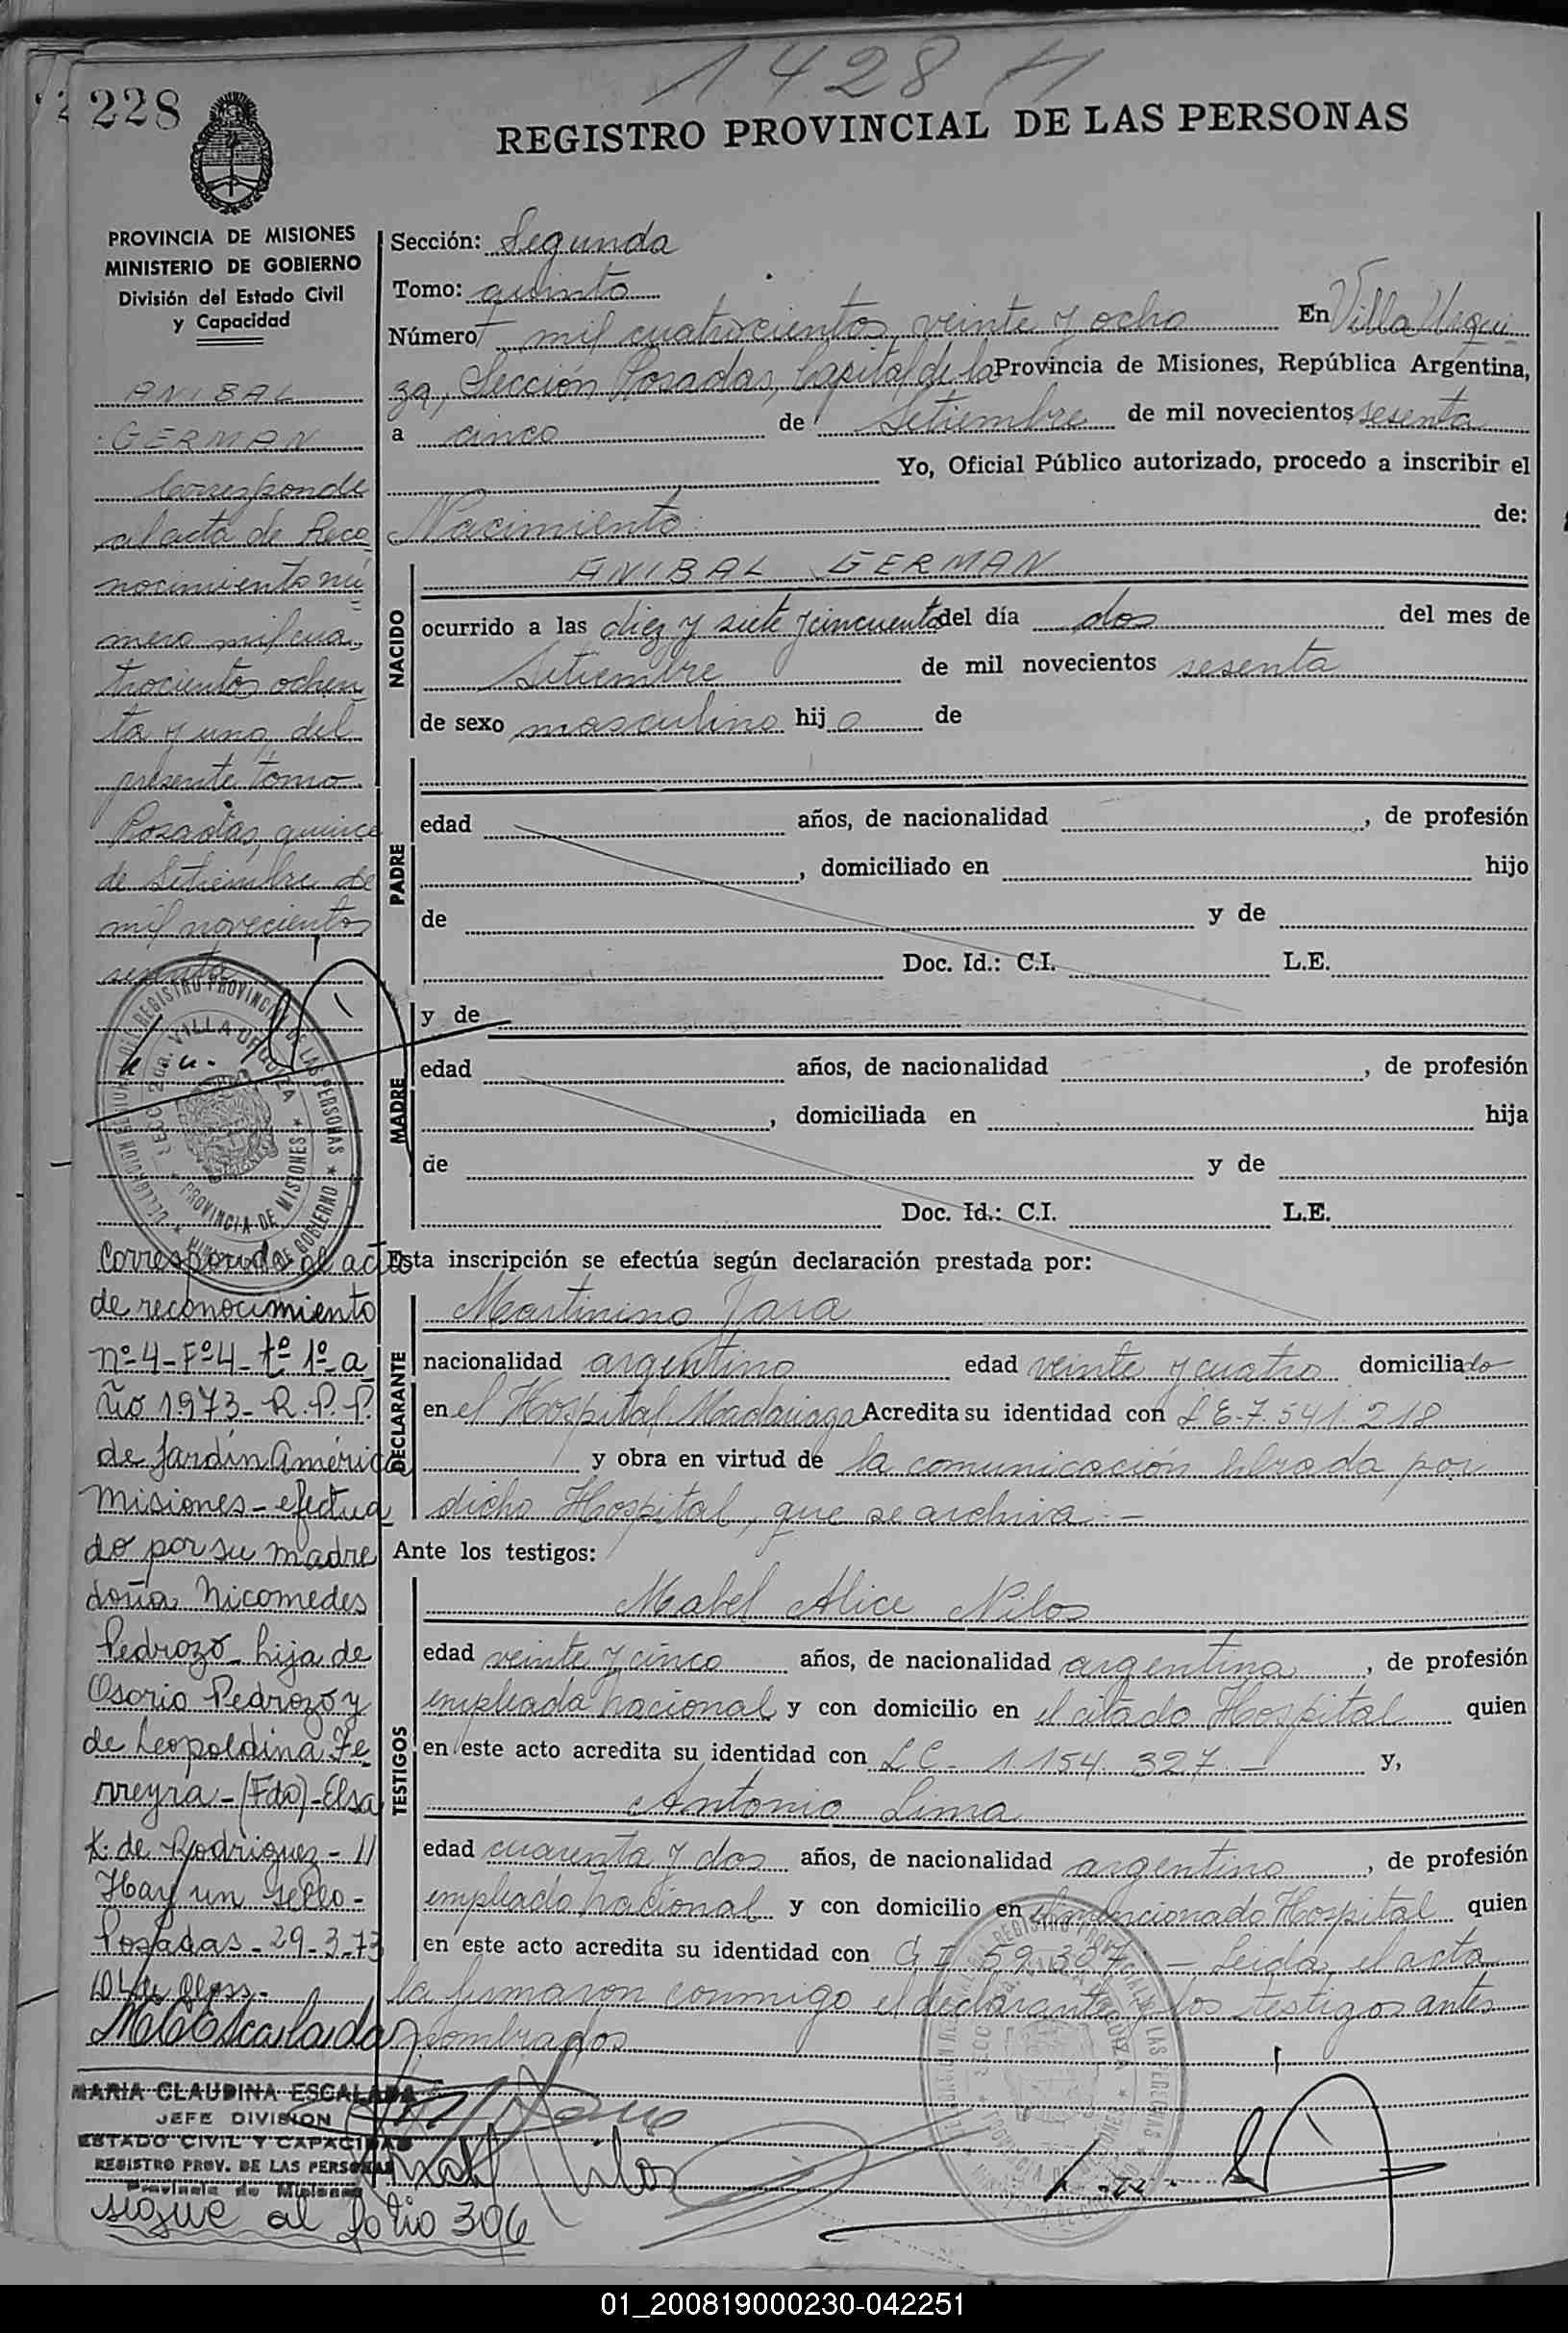 1428
228
REGISTRO PROVINCIAL DE LAS PERSONAS
PROVINCIA DE MISIONES
MINISTERIO DE GOBIERNO
División del Estado Civil
y Capacidad
ANIBAL
GERMAN
Corresponde
al acta de Reco
nocimiento nú
mero mil cua-
trocientos ochen
ta y uno del
presente tomo.
Posadas, quince
de Setiembre de
mil novecientos
sesenta
DEL REGISTRO PROVINCIAL DE LAS PERSONAS
SECC. 2da. VILLA URQUIZA
PROVINCIA DE MISIONES
Corresponde al acta
de reconocimiento
nº-4-Fº4-tº 1º-a
ño 1973- R. P. P.
de Jardín América
Misiones - efectua
do por su madre
doña Nicomedes
Pedrozo - hija de
Osorio Pedrozo y
de Leopoldina Fe
rreyra - (Fdo) - Elsa
K. de Rodriguez - //
Hay un sello -
Posadas - 29-3-73
MCEscalada
MARIA CLAUDINA ESCALADA
JEFE DIVISION
ESTADO CIVIL Y CAPACIDAD
REGISTRO PROV. DE LAS PERSONAS
Provincia de Misiones
sigue al folio 306
Sección: Segunda
Tomo: quinto
Número mil cuatrocientos veinte y ocho En Villa Urqui
za, Sección Posadas, Capital de la Provincia de Misiones, República Argentina,
a cinco de Setiembre de mil novecientos sesenta
Yo, Oficial Público autorizado, procedo a inscribir el
Nacimiento de:
NACIDO
ANIBAL GERMAN
ocurrido a las diez y siete y cincuenta del día dos del mes de
Setiembre de mil novecientos sesenta
de sexo masculino hijo de
PADRE
edad años, de nacionalidad , de profesión
, domiciliado en hijo
de y de
Doc. Id.: C.I. L.E.
y de
MADRE
edad años, de nacionalidad , de profesión
, domiciliada en hija
de y de
Doc. Id.: C.I. L.E.
Esta inscripción se efectúa según declaración prestada por:
DECLARANTE
Martinino Jara
nacionalidad argentino edad veinte y cuatro domiciliado
en el Hospital Madariaga Acredita su identidad con L E-7.541.218
y obra en virtud de la comunicación librada por
dicho Hospital, que se archiva.-
Ante los testigos:
TESTIGOS
Mabel Alice Nilos
edad veinte y cinco años, de nacionalidad argentina, de profesión
empleada nacional y con domicilio en el citado Hospital quien
en este acto acredita su identidad con L C - 1.154.327.- y,
Antonio Lima
edad cuarenta y dos años, de nacionalidad argentino, de profesión
empleado nacional y con domicilio en el mencionado Hospital quien
en este acto acredita su identidad con C I 59.337 - Leida el acta
la firmaron conmigo el declarante y los testigos antes
nombrados
REGISTRO PROVINCIAL DE LAS PERSONAS
01_200819000230-042251